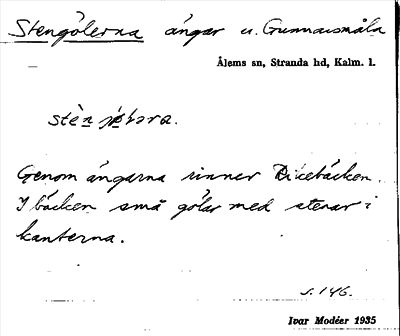 Stengölerna ängar u. Gunnarsmåla
Ålems sn, Stranda hd, Kalm. l.
Genom ängarna rinner Dicebäcken.
I bäcken små gölar med stenar i
kanterna.
s. 146.
Ivar Modéer 1935